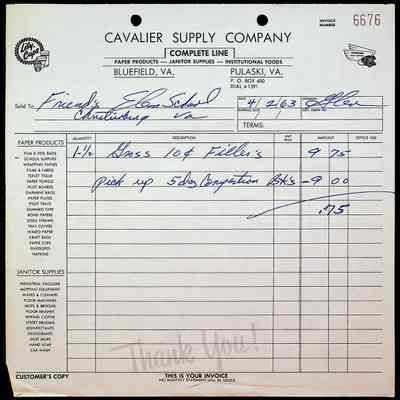 INVOICE NUMBER 6676
CAVALIER SUPPLY COMPANY
COMPLETE LINE
PAPER PRODUCTS — JANITOR SUPPLIES — INSTITUTIONAL FOODS
BLUEFIELD, VA. PULASKI, VA.
P. O. BOX 400
Sold To Friends Elem School DATE 4/2/63
Christiansburg Va
TERMS:
QUANTITY DESCRIPTION UNIT PRICE AMOUNT OFFICE USE
1-½ Gross 10¢ Filler's 9 75
pick up 5 doz Composition Bk's - 9 00
.75
PAPER PRODUCTS
PIE & FOOD BAGS
SCHOOL SUPPLIES
WRAPPING PAPERS
FILMS & LABELS
TOILET TISSUE
PAPER TOWELS
PILOT BOARDS
PAPER PLATES
PILOT TRAYS
GUMMED TAPE
BOND PAPERS
SODA STRAWS
TRAY COVERS
WAXED PAPER
KRAFT BAGS
PAPER CUPS
ENVELOPES
NAPKINS
JANITOR SUPPLIES
INDUSTRIAL VACUUMS
MOPPING EQUIPMENT
WAXES & CLEANERS
FLOOR MACHINES
MOPS & BROOMS
FLOOR BRUSHES
STREET BROOMS
DISINFECTANTS
DEODORANTS
DUST MOPS
HAND SOAP
CAR WASH
Thank You!
CUSTOMER'S COPY THIS IS YOUR INVOICE
NO MONTHLY STATEMENT WILL BE ISSUED